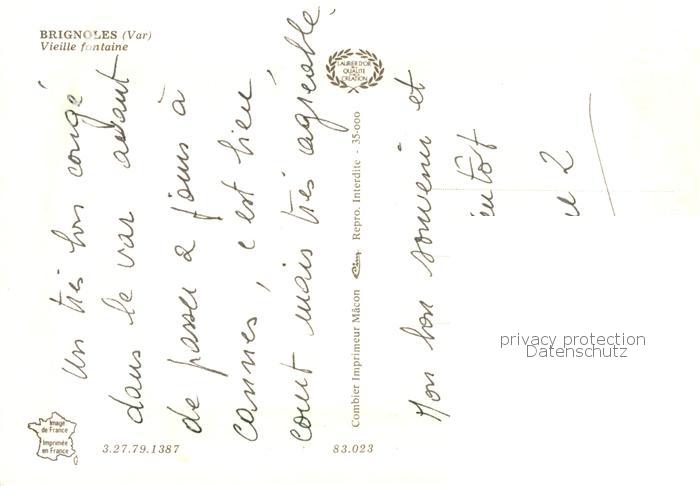 BRIGNOLES (Var)
Vieille fontaine
LAURIER D'OR
DE LA
QUALITÉ
CRÉATION
Un très bon congé
dans le var avant
de passer 2 jours à
cannes, c'est bien
court mais très agréable.
Combier Imprimeur Mâcon Cim Repro. Interdite - 35-000
Mon bon souvenir et
ientôt
2
privacy protection
Datenschutz
Image
de France
Imprimée
en France
3.27.79.1387
83.023